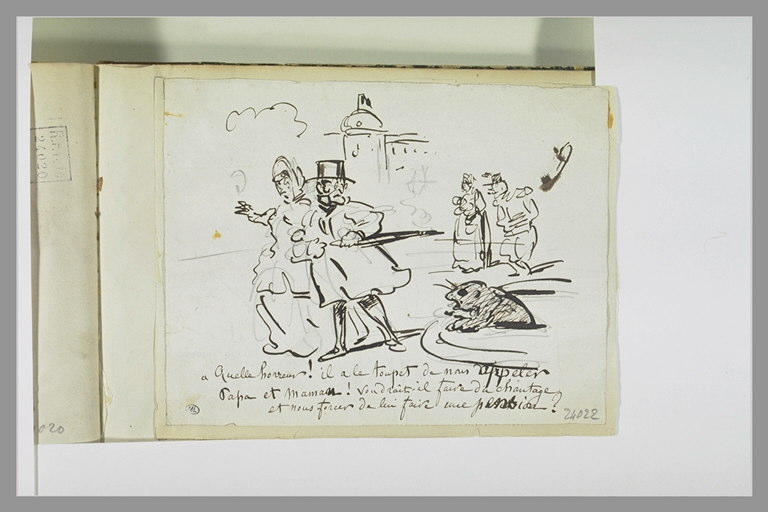 a Quelle horreur ! il a le toupet de nous appeler
Papa et Maman ! voudrait-il faire du chantage
et nous forcer de lui faire une pension ?
24022
020
24020